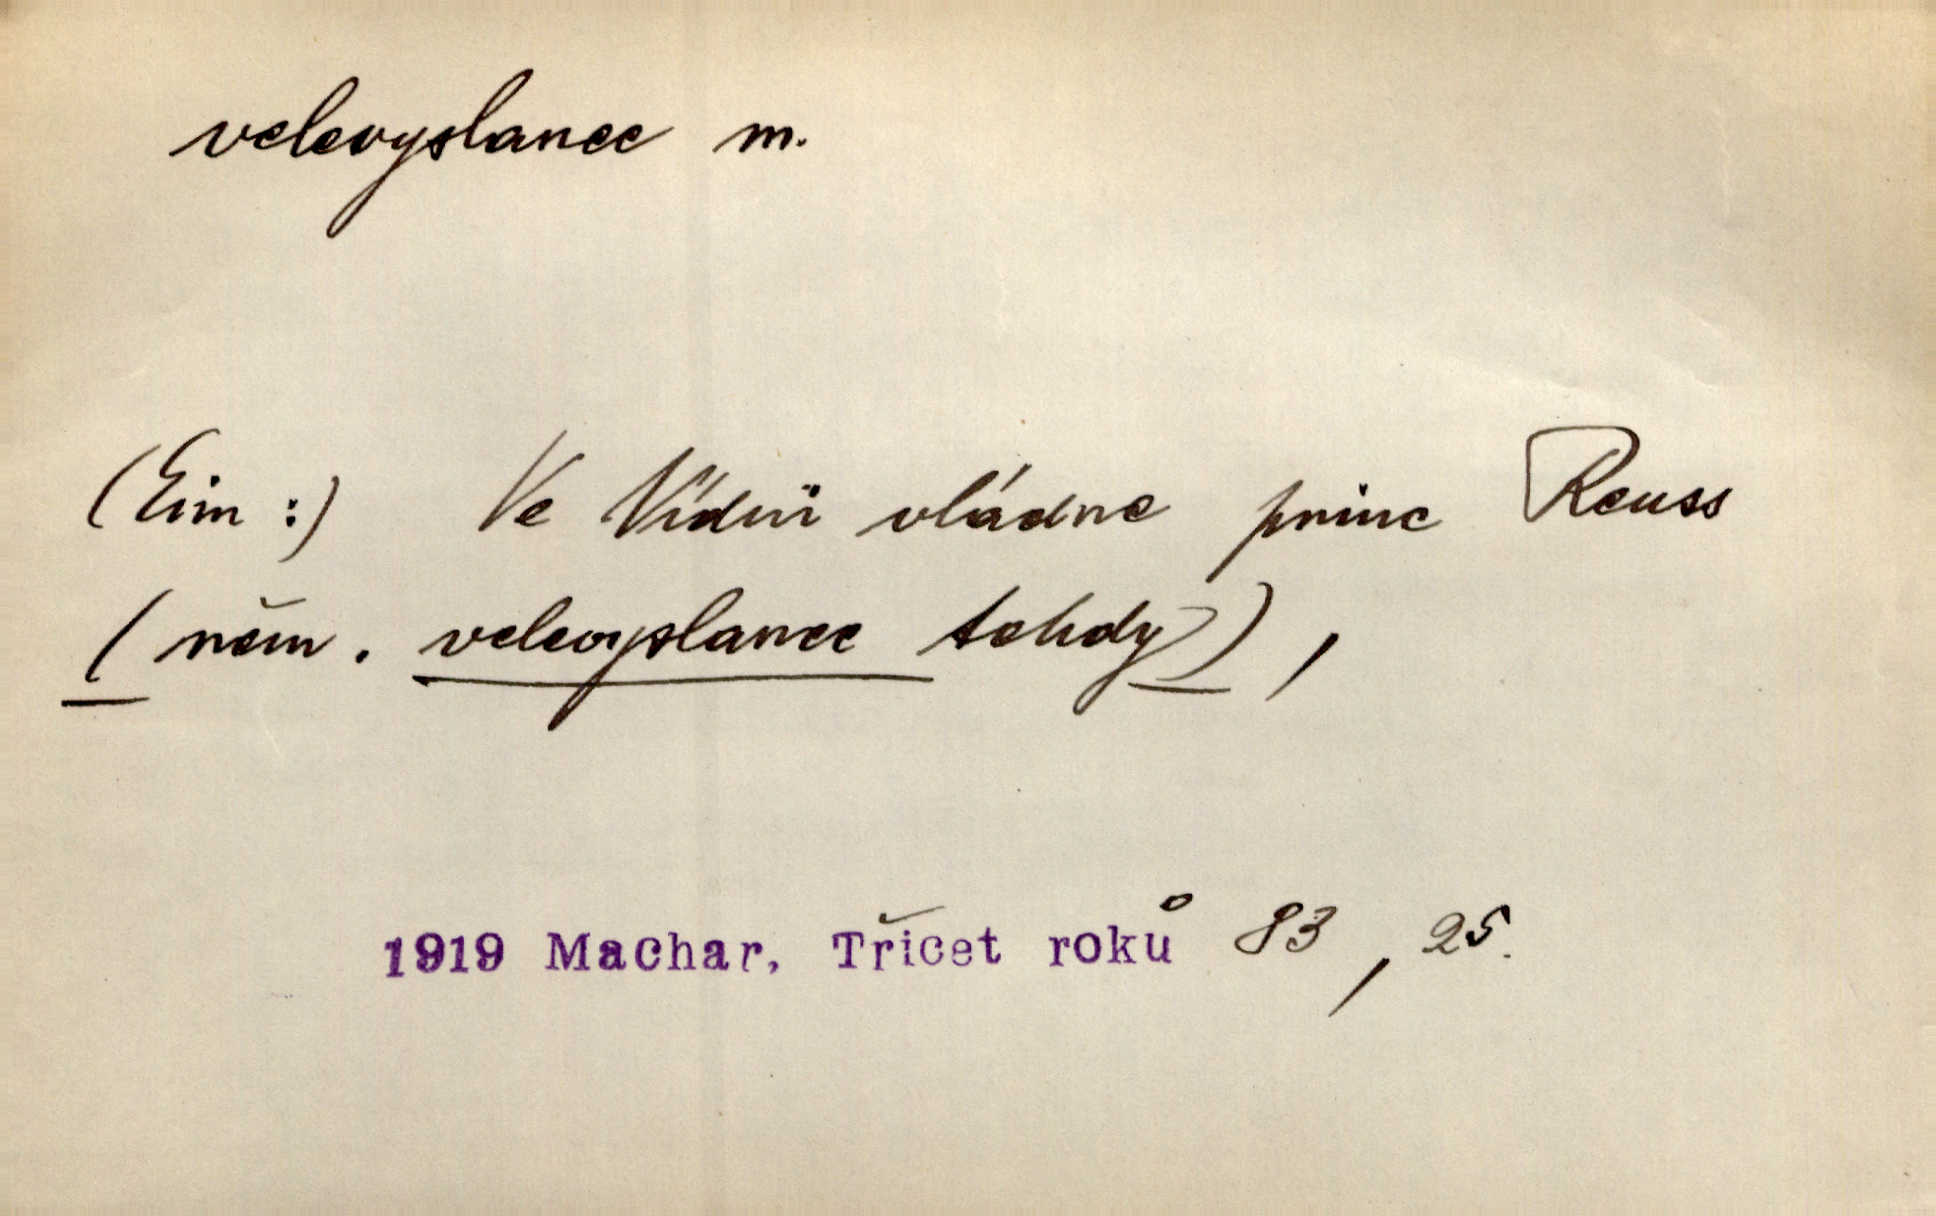 velevyslanec m.
(Eim:) Ve Vídni vládne princ Reuss
(něm. velevyslanec tehdy),
1919 Machar, Třicet roků 83, 25.